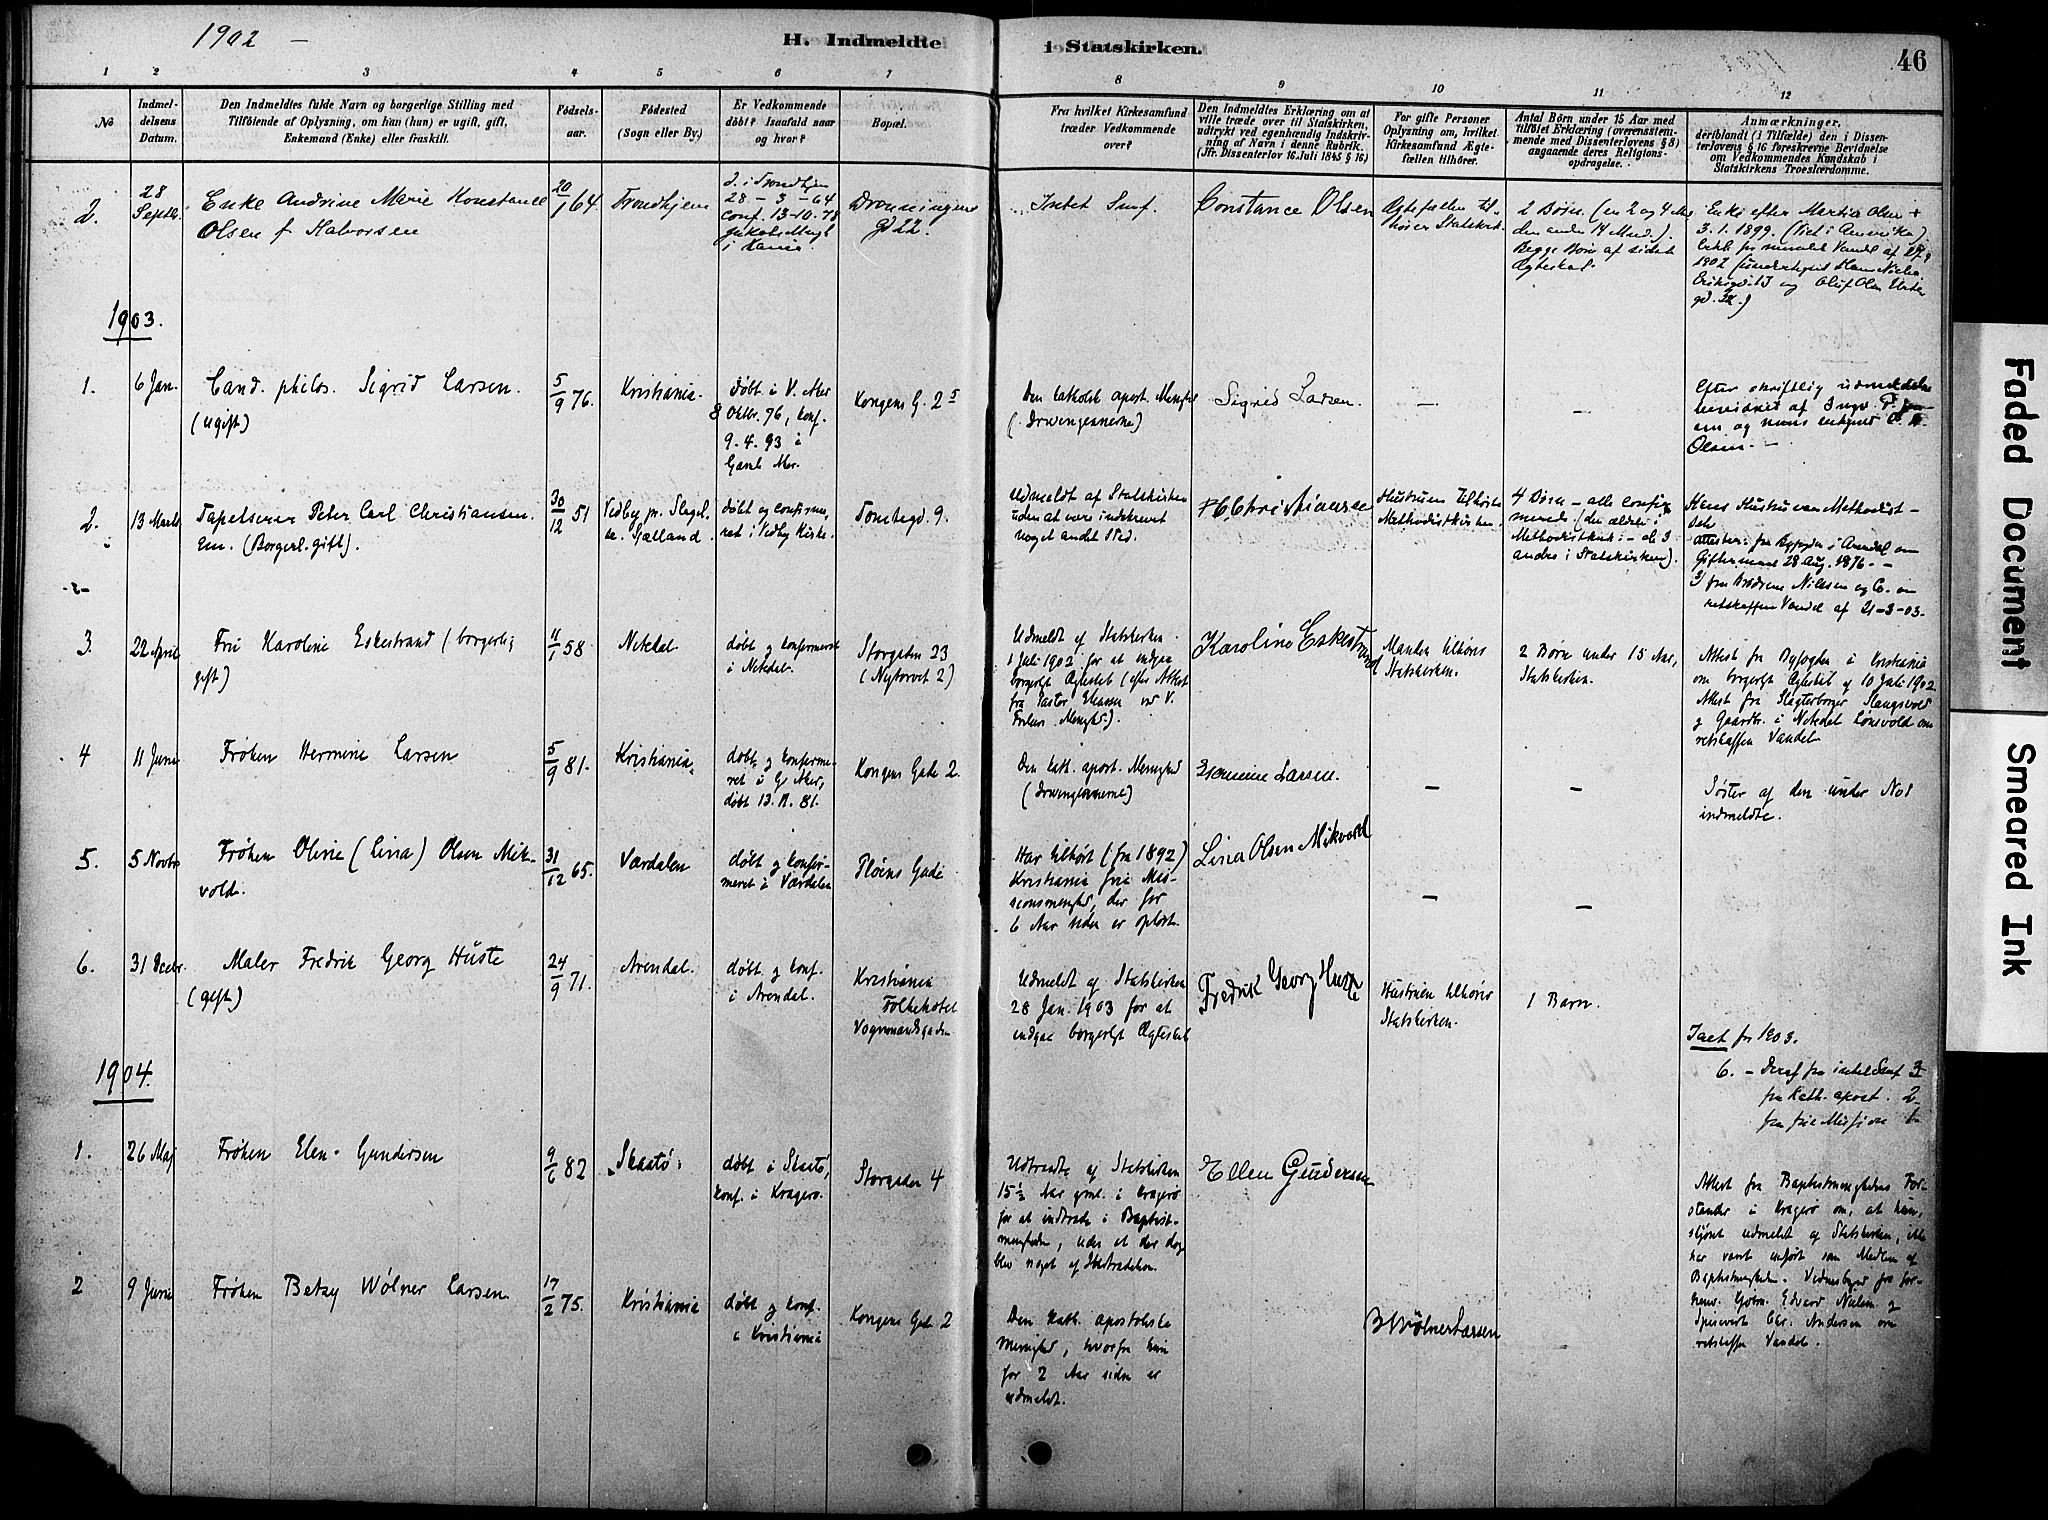 1902 –
H. Indmeldte i Statskirken.
46
1 2 3 4 5 6 7 8 9 10 11 12
No
Indmel-
delsens
Datum.
Den Indmeldtes fulde Navn og borgerlige Stilling med
Tilföiende af Oplysning, om han (hun) er ugift, gift,
Enkemand (Enke) eller fraskilt.
Födsels-
aar.
Födested
(Sogn eller By.)
Er Vedkommende
döbt? Isaafald naar
og hvor?
Bopæl.
Fra hvilket Kirkesamfund
træder Vedkommende
over?
Den Indmeldtes Erklæring om at
ville træde over til Statskirken,
udtrykt ved egenhændig Indskriv-
ning af Navn i denne Rubrik.
(Jfr. Dissenterlov 16 Juli 1845 § 16)
For gifte Personer
Oplysning om, hvilket
Kirkesamfund Ægte-
fællen tilhörer.
Antal Børn under 15 Aar med
tilföiet Erklæring (overensstem-
mende med Dissenterlovens § 8)
angaaende deres Religions-
opdragelse.
Anmærkninger,
deriblandt (i Tilfælde) den i Dissen-
terlovens § 16 foreskrevne Bevidnelse
om Vedkommendes Kundskab i
Statskirkens Troeslærdomme.
2.
28
Septb.
Enke Andrine Marie Konstance
Olsen f Halvorsen
20/1 64
Trondhjem
d. i Trondhjem
28 – 3 – 64
conf. 13-10-78
i
Dronningens
gd 22.
Intet Smf.
Constance Olsen
Ægtefællen til-
hører Statskirk.
2 Børn (en 2 og 4 Md
den anden 14 Mnd.).
Begge Børn af sidste
Ægteskab.
Enke efter Martin Olsen +
3. 1. 1899. (Viet i Amerika)
1902
og Oluf Olsen
1903.
1.
6 Jan.
Cand. philos. Sigrid Larsen.
(ugift)
5/9 76.
Kristiania.
døbt i V. Aker
8 Oktbr. 76, konf.
9. 4. 93 i
Gamle Aker.
Kongens G. 2
Den katholsk apost. Menighed
(Irvingianerne)
Sigrid Larsen.
–
–
Efter skriftlig udmeldelse
bevidnet af
Olsen. –
2.
13 Marts
Tapetserer Peter Carl Christiansen.
Em. (Borgerl. gift).
30/12 51
Vedby pr. Slagel-
se. Sjælland.
døbt og confirme-
ret i Vedby Kirke.
Tomtegd 9.
Udmeldt af Statskirken
uden at være indskrevet
noget andet Sted.
P C Christiansen
Hustruen tilhører
Methodistkirken.
4 Børn – alle confir-
merede (den ældste i
Methodistkirk: – de 3
andre i Statskirken).
Hans Hustru er Methodist –
Attester: fra Byfogden i Arendal om
Giftermaal 28 Aug. 1876. –
3/ fra Brødrene Nilssen og Co. om
retskaffen Vandel af 21-3-03.
3.
22 April
Fru Karoline Eskestrand (borgerlig
gift)
11/1 58
Nitedal
døbt og konfirmeret
i Nitedal.
Storgaden 23
(Nytorvet 2)
Udmeldt af Statskirken
1 Juli 1902 for at indgaa
borgerligt Ægteskab (efter Attest
fra Pastor
Menighed).
Karoline Eskestrand
Manden tilhører
Statskirken.
2 Børn under 15 Aar,
Statskirken.
Attest fra Byfogden i Kristiania
om borgerligt Ægteskab af 10 Juli 1902
Attest fra Slagterborger Slaugsvold
og Gaardbr. i Nitedal Lønsvold om
retskaffen Vandel
4
11 Juni
Frøken Hermine Larsen
5/9 81.
Kristiania.
døbt og konfirme-
ret i G. Aker,
døbt 13. 11. 81.
Kongens Gade 2.
Den kath. apost. Menighed
(Irvingianerne)
Hermine Larsen.
–
–
Søster af den under No 1
indmeldte.
5.
5 Novbr
Frøken Oline (Lina) Olsen Mik-
vold.
31/12 65.
Værdalen
døbt og konfir-
meret i Værdalen
Pløens Gade
Har tilhørt (fra 1892)
Kristiania frie Mis-
sionsmenighed, der for
6 Aar siden er opløst.
Lina Olsen Mikvold
–
–
6.
31 Decbr.
Maler Fredrik Georg Huste
(gift)
24/9 71.
Arendal.
døbt og konf.
i Arendal.
Kristiania
Folkehotel
Vognmandsgaden
Udmeldt af Statskirken
28 Jan. 1903 for at
indgaa borgerligt Ægteskab
Fredrik Georg Huste
Hustruen tilhører
Statskirken.
1 Barn.
Ialt for 1903.
6. – Deraf fra intet Smf 3
fra Kath. apost. 2
fra frie Mission 1
1904.
1.
26 Maj
Frøken Elen Gundersen
9/6 82
Skaatø.
døbt i Skaatø,
konf. i Kragerø.
Storgaden 4
Udtraadte af Statskirken
15 1/2 Aar gml. i Kragerø
for at indtræde i Baptist-
menigheden, uden at der dog
blev noget af Indtrædelsen.
Ellen Gundersen
Attest fra Baptistmenighedens For-
stander i Kragerø om, at hun,
skjønt udmeldt af Statskirken, ikke
har været indført som Medlem af
Baptistmenigheden. Vidnesbyrd fra
Edvard Nielsen og
Chr. Andersen om
retskaffen Vandel.
2
9 Juni
Frøken Betzy Wølner Larsen
17/2 75.
Kristiania
døbt og konf.
i Kristiania
Kongens Gade 2
Den kath. apostolske
Menighed, hvorfra hun
for 2 Aar siden er
udmeldt.
B Wølner Larsen
Faded Document
Smeared Ink